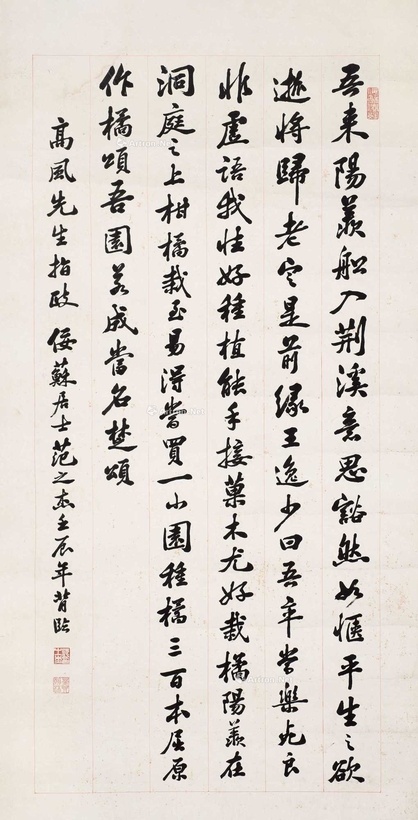 吾来陽羨船入荆溪意思豁然如愜平生之欲
逝將歸老定是前緣王逸少曰吾卒當樂死良
非虛語我性好種植能手接菓木尤好栽橘陽羨在
洞庭之上柑橘栽至易得當買一小園種橘三百本屈原
作橘頌吾園若成當名楚頌
高風先生指政 佞蘇居士范之杰壬辰年背臨